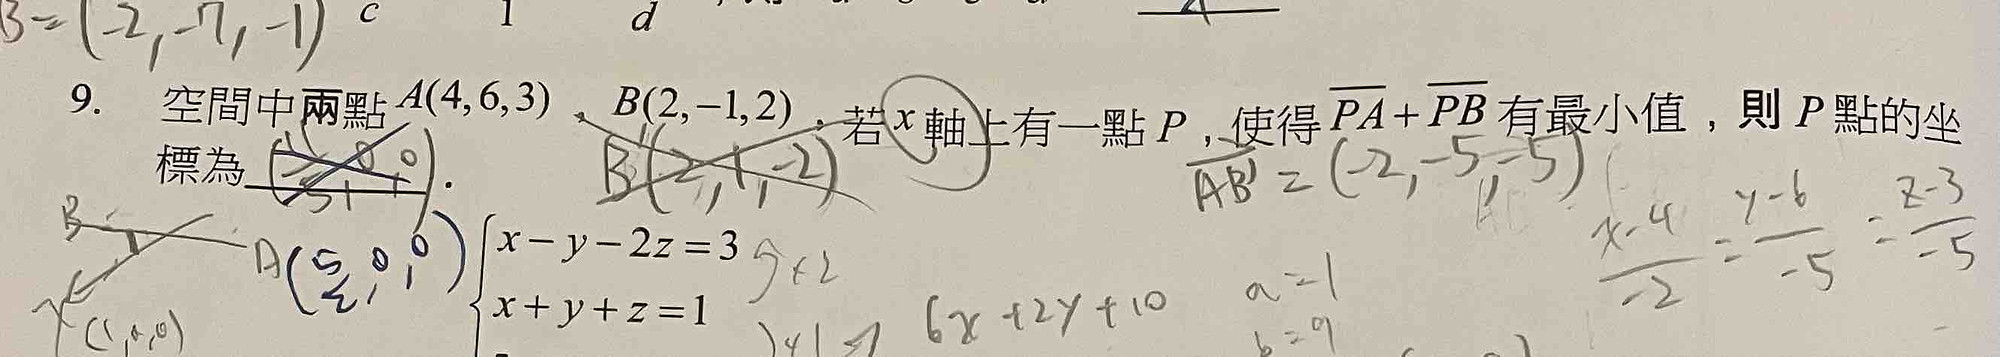 B=(-2,-7,-1) c 1 d
9. 空間中兩點 A(4,6,3)、B(2,-1,2),若 x 軸上有一點 P,使得 PA+PB 有最小值,則 P 點的坐
標為 .
B(2,1,-2) AB' = (-2,-5,-5)
x-4/-2 = y-6/-5 = z-3/-5
B A (5/2,0,0)
x-y-2z=3
x+y+z=1
(1,0,0)
6x+2y+10
a=1
b=9